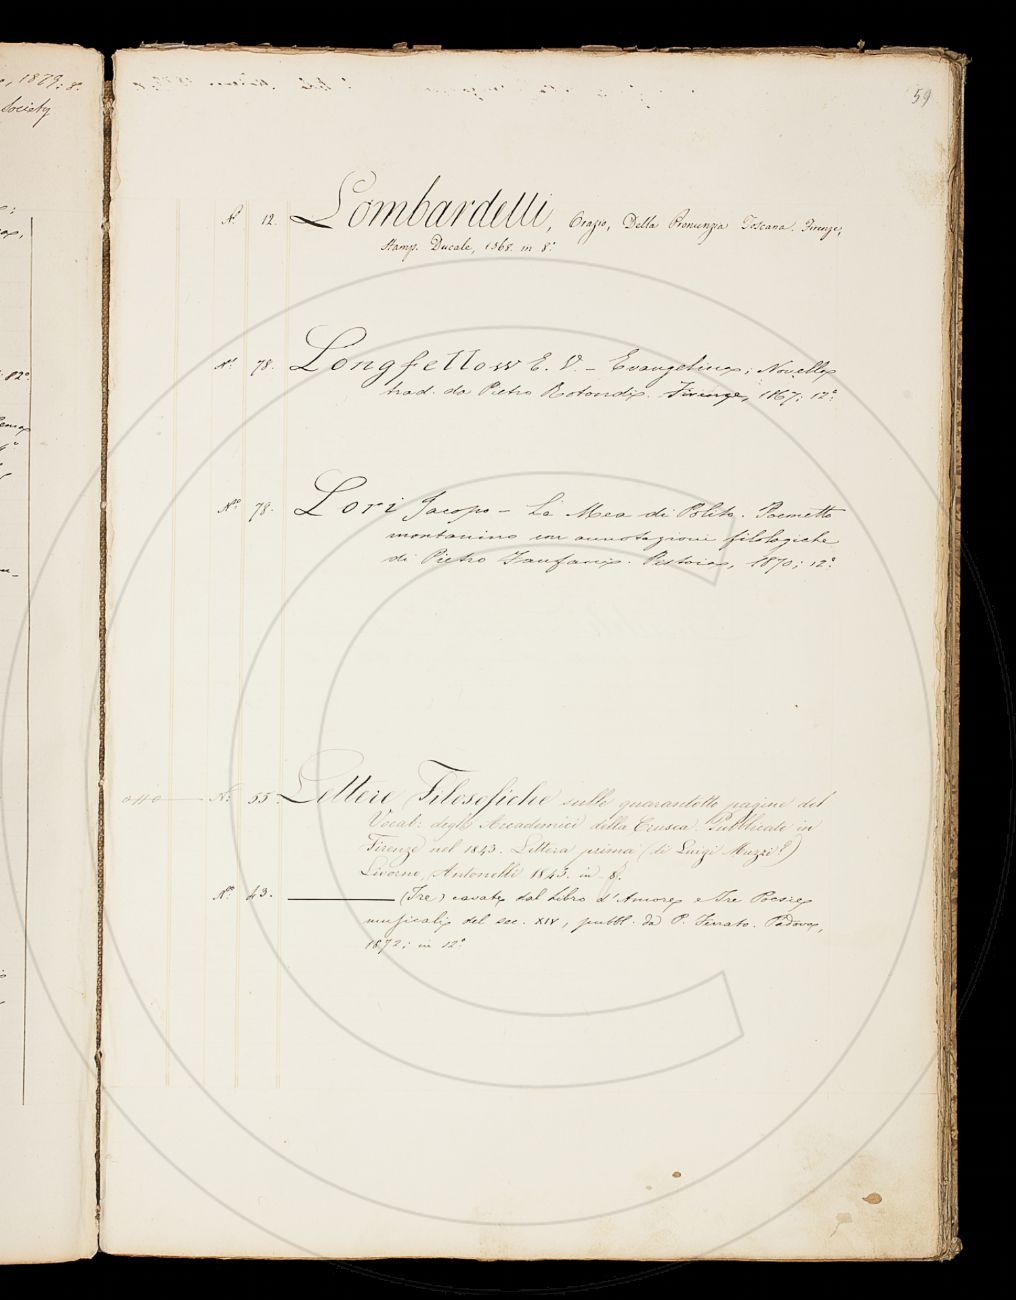 59
N.° 12. Lombardelli, Orazio, Della Pronunzia Toscana. Firenze,
Stamp. Ducale, 1568. in 8.°
N.° 78. Longfellow E. V. – Evangelina; Novella
trad. da Pietro Rotondi. Firenze, 1867; 12.°
N.° 78. Lori Jacopo – La Mea di Polito. Poemetto
montanino con annotazioni filologiche
di Pietro Fanfani. Pistoia, 1870; 12.°
N.° 55. Lettere Filosofiche sulle quarantotto pagine del
Vocab: degli Accademici della Crusca. Pubblicate in
Firenze nel 1843. Lettera prima (di Luigi Muzzi?)
Livorno, Antonelli 1843. in 8.
N.° 43. ——— (Tre) cavate dal Libro d'Amore e Tre Poesie
musicali del sec. XIV, pubbl. da P. Ferrato. Padova,
1872; in 12.°
1879; 8.
Society